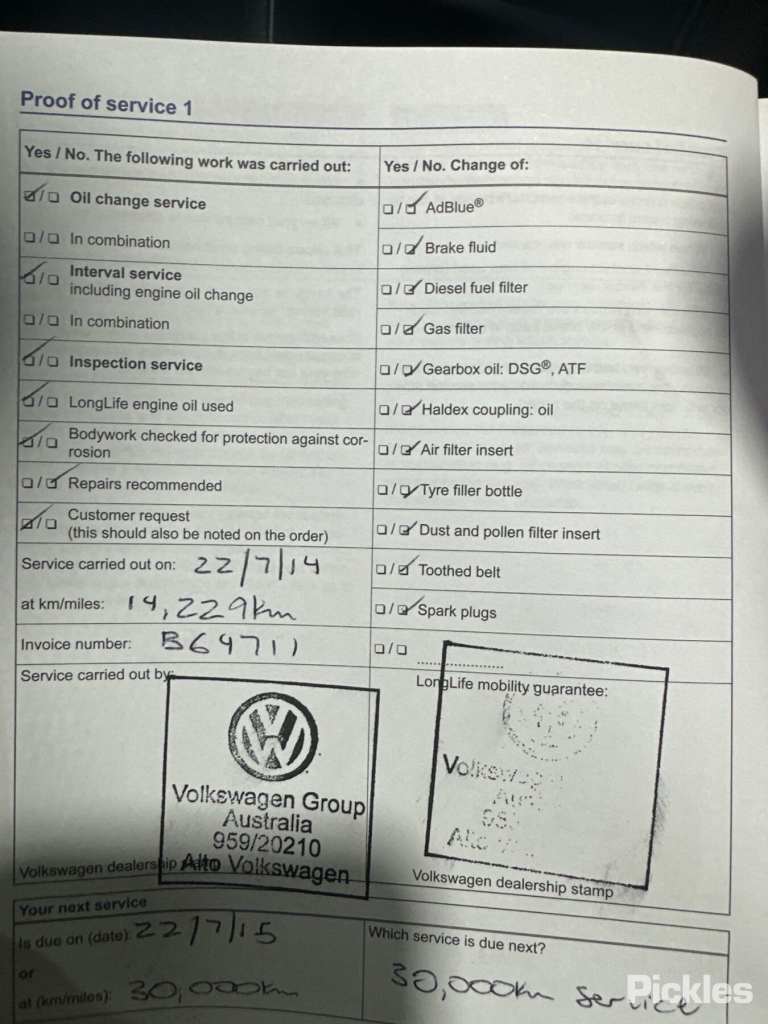 Proof of service 1
Yes / No. The following work was carried out:
Oil change service
In combination
Interval service
including engine oil change
In combination
Inspection service
LongLife engine oil used
Bodywork checked for protection against cor-
rosion
Repairs recommended
Customer request
(this should also be noted on the order)
Service carried out on: 22/7/14
at km/miles: 14,229km
Invoice number: B64711
Service carried out by:
Volkswagen Group
Australia
959/20210
Alto Volkswagen
Volkswagen dealership
Yes / No. Change of:
AdBlue®
Brake fluid
Diesel fuel filter
Gas filter
Gearbox oil: DSG®, ATF
Haldex coupling: oil
Air filter insert
Tyre filler bottle
Dust and pollen filter insert
Toothed belt
Spark plugs
LongLife mobility guarantee:
Volkswagen dealership stamp
Your next service
Is due on (date): 22/7/15
or
at (km/miles): 30,000km
Which service is due next?
30,000km service
Pickles